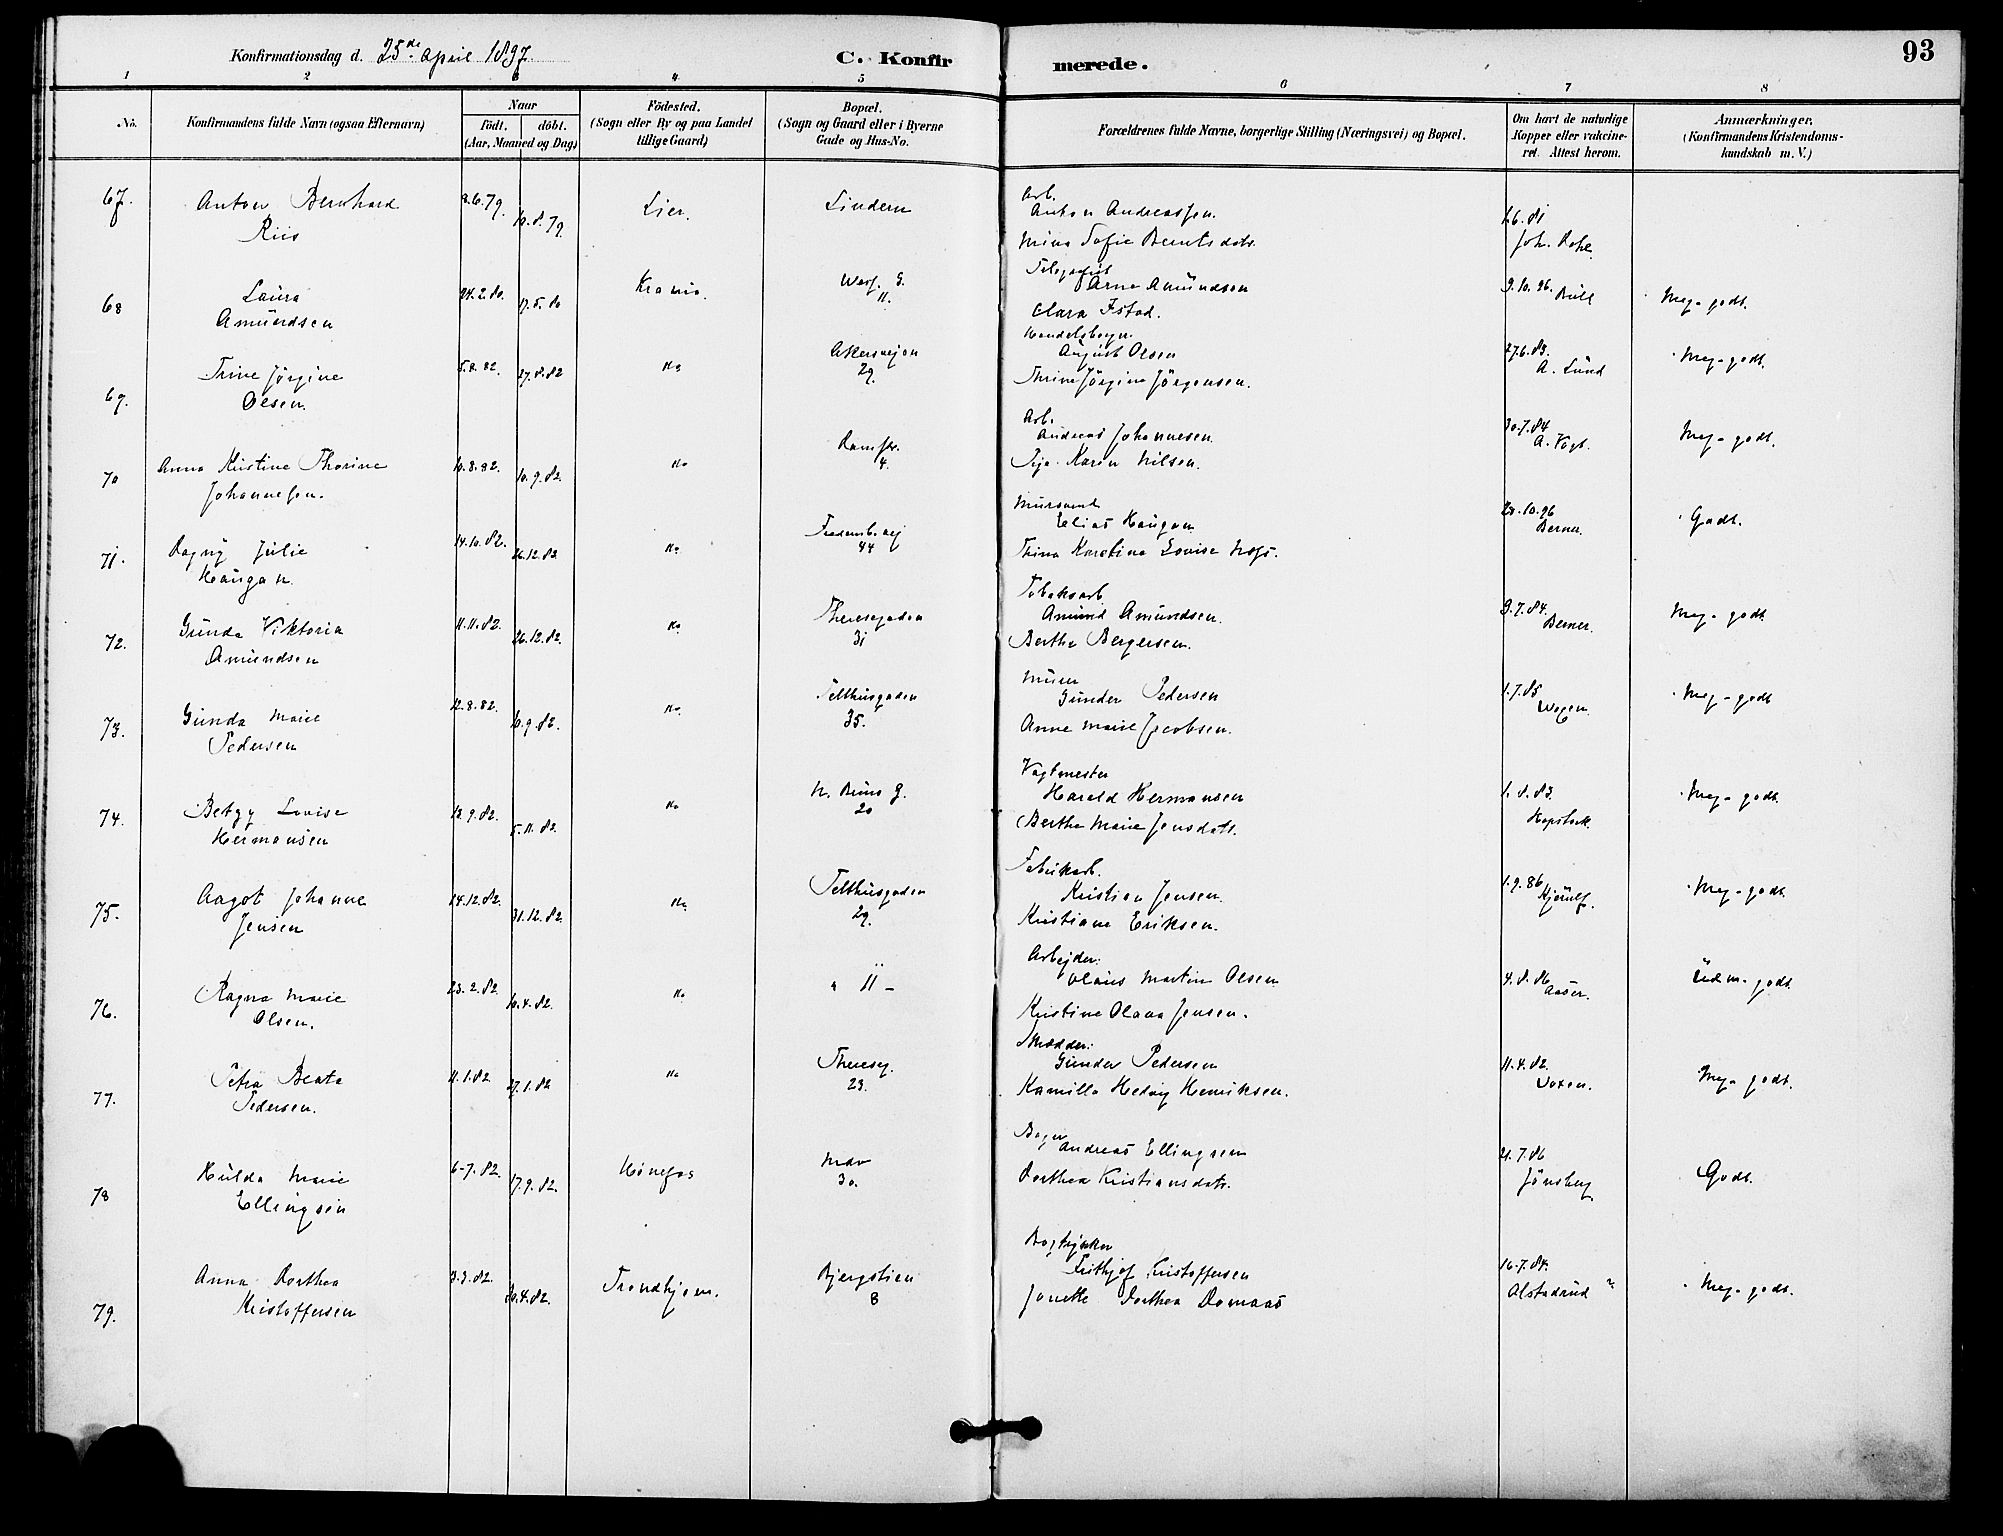 Konfirmationsdag d. 25de April 1897
C. Konfirmerede.
93
1 2 3 4 5 6 7 8
No.
Konfirmandens fulde Navn (ogsaa Efternavn)
Naar
födt. döbt.
(Aar, Maaned og Dag)
Födested.
(Sogn eller By og paa Landet
tillige Gaard)
Bopæl.
(Sogn og Gaard eller i Byerne
Gade og Hus-No.
Forældrenes fulde Navne, borgerlige Stilling (Næringsvei) og Bopæl.
Om havt de naturlige
Kopper eller vakcine-
ret. Attest herom.
Anmærkninger,
(Konfirmandens Kristendoms-
kundskab m. V.)
67. Anton Bernhard
Riis
8.6.79. 10.8.79.
Lier.
Lindern
Arb.
Anton Andreassen.
Mina Sofie Berntsdatr.
Joh.
68
Laura
Amundsen
24.2.80. 17.5.80
Krania.
11.
Telegrafist
Arne Amundsen
Clara Istad.
9.10.96. Bull
Meg. godt.
69.
Trine Jörgine
Olsen.
5.8.82. 27.8.82
Ka
Akersvejen
29.
Handelsborger.
August Olsen
Thrine Jörgine Jörgensen.
27.6.83.
A. Lund
Meg. godt.
70
Anna Kristine Thorine
Johannesen.
10.8.82. 10.9.82.
Ka
4.
Arb.
Andreas Johannesen.
Karen Nilsen.
30.7.84
A. Vogt.
Meg. godt.
71.
Dagny Julie
Haugan.
14.10.82. 26.12.82
Ka
44
Mursvend
Elias Haugan
Trina Karetina Lovise
10.96
Berner.
Godt.
72.
Gunda Viktoria
Amundsen
11.11.82. 26.12.82.
Ka
Theresegaden
31
Tobaksarb.
Amund Amundsen.
Berthe Bergersen.
9.7.84.
Berner.
Meg. godt.
73.
Gunda Marie
Pedersen
12.8.82. 10.9.82.
Ka
Telthusgaden
35.
Murer
Gunder Pedersen
Anne Marie Jacobsen.
1.7.85
Meg. godt
74.
Betzy Lovise
Hermansen
13.9.82. 5.11.82.
Ka
N. Bruns g.
20
Vagtmester
Harald Hermansen
Berthe Marie Jensdatr.
1.8.83.
Kopstock.
Meg. godt.
75.
Aagot Johanne
Jensen
14.12.82. 31.12.82.
Ka
Telthusgaden
29.
Fabrikarb.
Kristian Jensen.
Kristiane Eriksen.
1.9.86
Kjerulf.
Meg. godt.
76.
Ragna Marie
Olsen.
23.2.82. 10.4.82.
Ka
" 11 -
Arbejder.
Olaus Martin Olsen
Kristine Olava Jensen.
4.8.86
Aaser.
Udm. godt.
77.
Petra Beate
Pedersen.
11.1.82 27.1.82
Ka
Thereseg.
23.
Skrædder.
Gunder Pedersen
Kamilla Hedvig Henriksen.
11.4.82.
Meg. godt.
78
Hulda Marie
Ellingsen
6-7.82. 17.9.82.
Hönefos
30.
Bager
Andreas Ellingsen
Dorthea Kristiansdatr.
21.7.86
Jönsberg.
Godt.
79.
Anna Dorthea
Kristoffersen
3.3.82. 20.4.82.
Trondhjem.
Bjergstien
8
Bogtrykker
Frithjof Kristoffersen
Jonette Dorthea Domaas
16.7.84.
Alstadrud
Meg. godt.